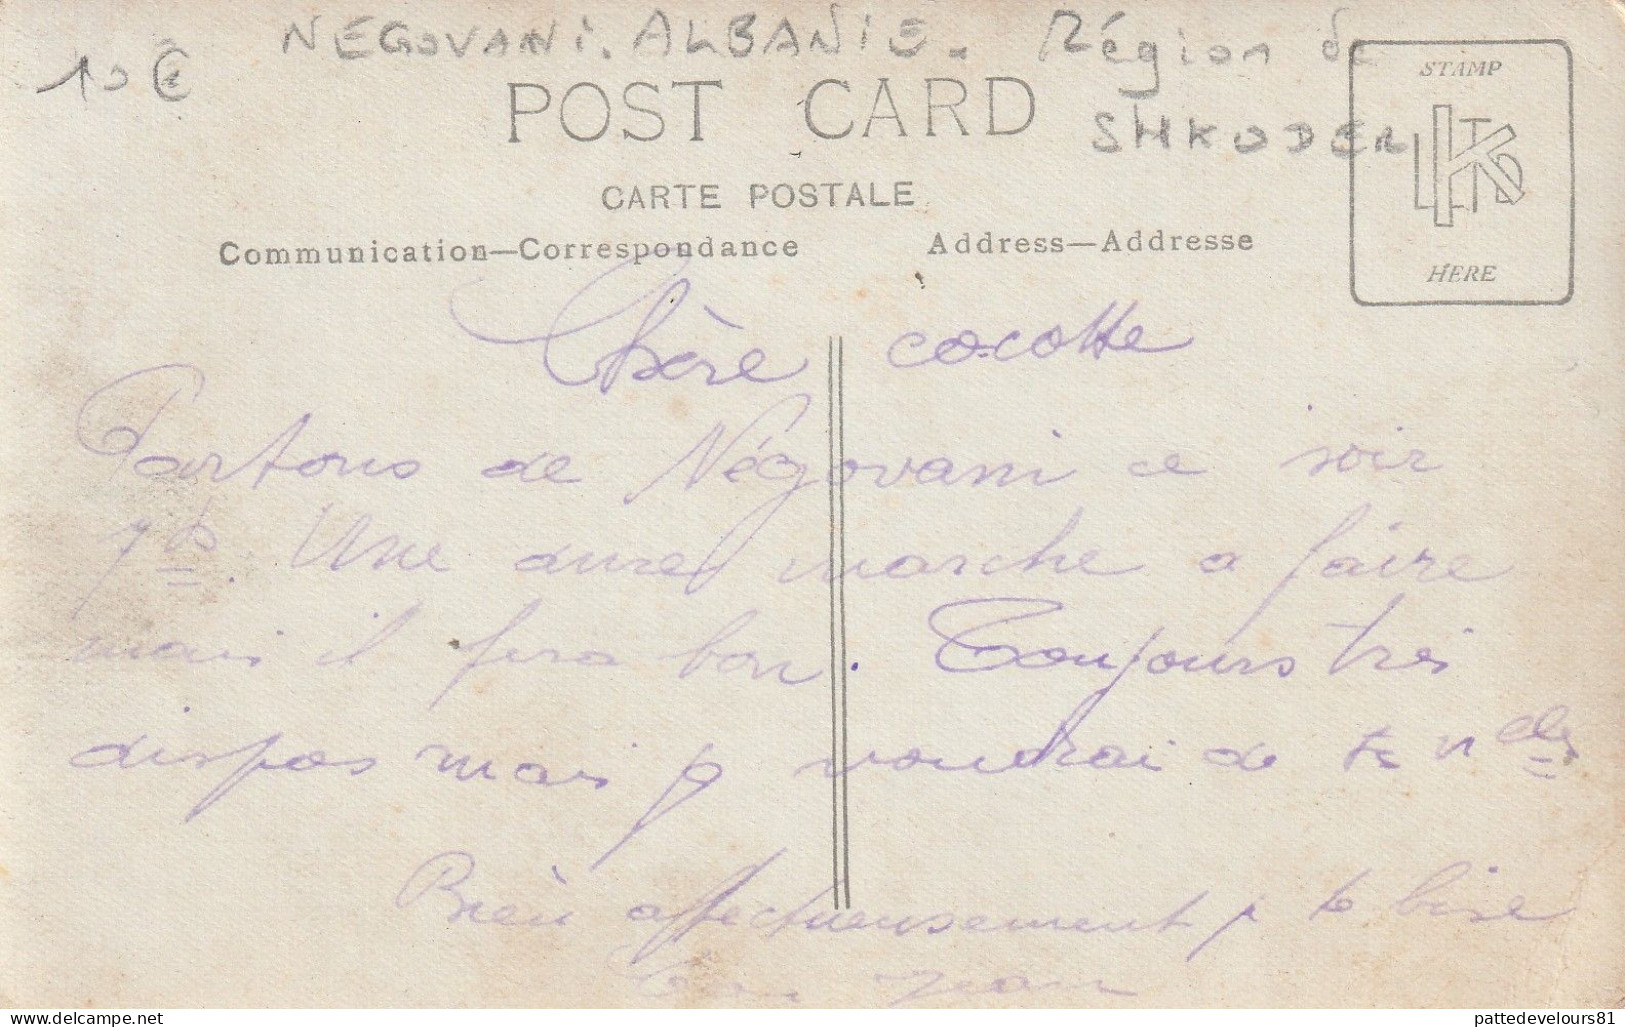 NEGOVANI. ALBANIE. Région de
10 €
SHKODER
POST CARD
STAMP
HERE
CARTE POSTALE
Communication—Correspondance
Address—Addresse
Chère cocotte
Partons de Négovani ce soir
7h. Une dure marche a faire
mais il fera bon. Toujours très
dispos mais je voudrai de te nelles
Bien affectueusement je te bise
ton Jean
pattedevelours81